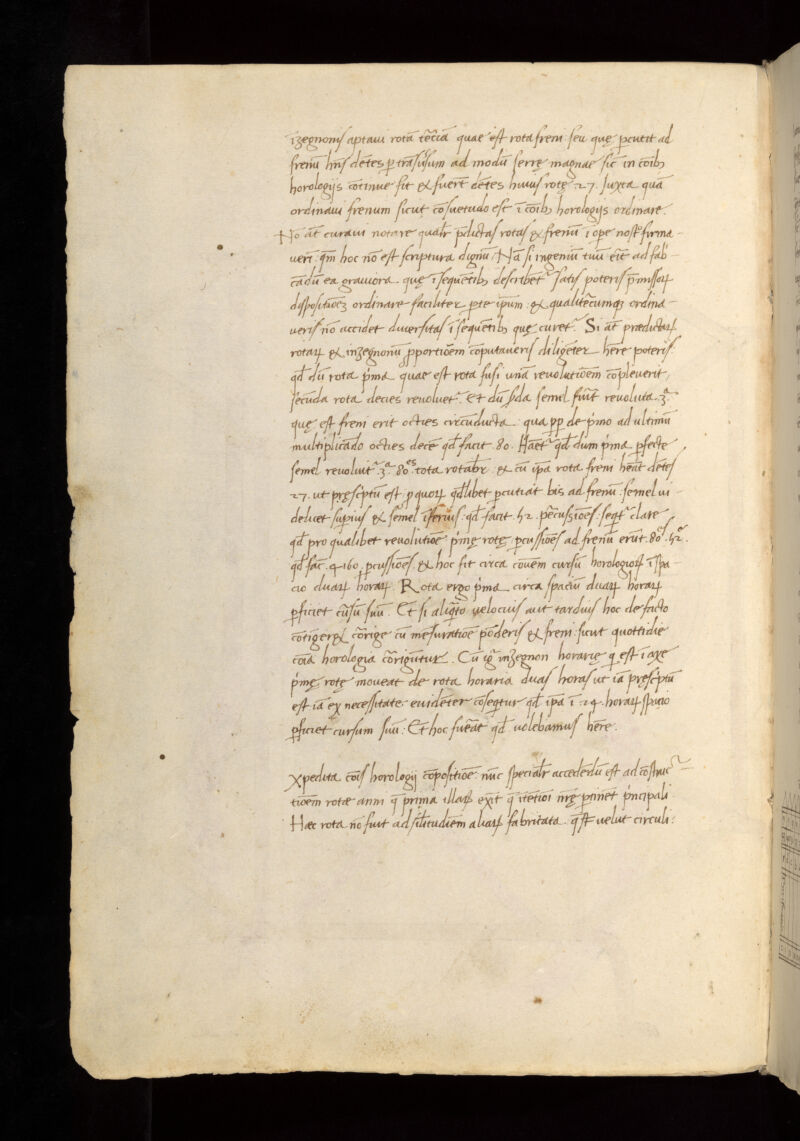 īzegnonis aptaui rotā tēciā quae est rota freni seu quę pcutit ad
frenū hn̄s dētes p trāsuersum ad modū serrę magnae sic in cōib3
horologijs cōtinue fit & fuerūt dētes huius rotę 27. Iuxta quā
ordinaui frenum sicut cōsuetudo est ī cōib3 horologijs ordinare.
Nō āt curaui notare qualr̄ p̄dictas rotas & frenū ī ope nos̄t firma
ueri. qm̄ hoc nō est scriptura dignū. Nā si ingeniū tuū erit ad fab
cādū ea grauiora. quę ī sequētib3 describētr satis poteris p̄missoꝝ
dispositiōe3 ordinare faciliter p te ipsum. & qualitercumq3 ordina
ueris nō accidet diuersitas ī sequētib3 quę curetr. Si āt prædictaꝝ
rotaꝝ & inzegnonū pportiōem cōputaueris diligēter hēre poteris
qd̄ dū rota p̄ma quae est rota fusi unā reuolutiōem cōpleuerit
secūda rota decies reuoluetr. Et dū sc̄da semel fuīt reuoluta 3a
quę est freni erit octies circūducta. qua pp de p̄mo ad ultimū
multiplicādo octies decē qd̄ facit 80. Haētr qd̄ dum p̄ma pfecte
semel reuoluitr 3a 80es tota rotabr̄. & cū ip̄a rota freni hēat dētes
27. ut pręsc̄ptū est p quoꝝ qd̄libet pcutiat bis ad frenū semel ui
delicet supius & semel īferius qd̄ facit 54. pēcussiōes seqtr clare
qd̄ pro qualibet reuolutiōe p̄mę rotę pcussiōes ad frenū erūt 80es 54.
qd̄ fac̄ 4160 pcussiōes. & hoc fit circa cōuem cursū horologioꝝ ī spa
cio duaꝝ horaꝝ. Rota ergo p̄ma circa spaciū duaꝝ horaꝝ
pficiet cūsū suū. Et si aliqn̄to uelocius aut tardius hoc de facto
cōtigerit cōrige cū mēsuratiōe pōderis & freni sicut quottidie
cōia horologia cōrigūtur. Cū igr̄ inzegnon horarię q est ī axe
p̄mę rotę moueat de rota horaria duas horas ut iā pręsc̄ptū
est iā ex necessitate euidēter cōseqtur qd̄ ip̄a ī 24 horaꝝ spacio
pficiet cursum suū: Et hoc fuerat qd̄ uolebamus hēre.
Xpedita cōis horologij cōpositiōe: nūc specialr̄ accedēdū est ad cōstruc
tiōem rotæ anni q prima illaꝝ exit q ītētiōi nrę ptinet p̄ncipali
Hæc rota nō fuit ad silitudiēm aliaꝝ fabricata. qs̄ uelut circuli: